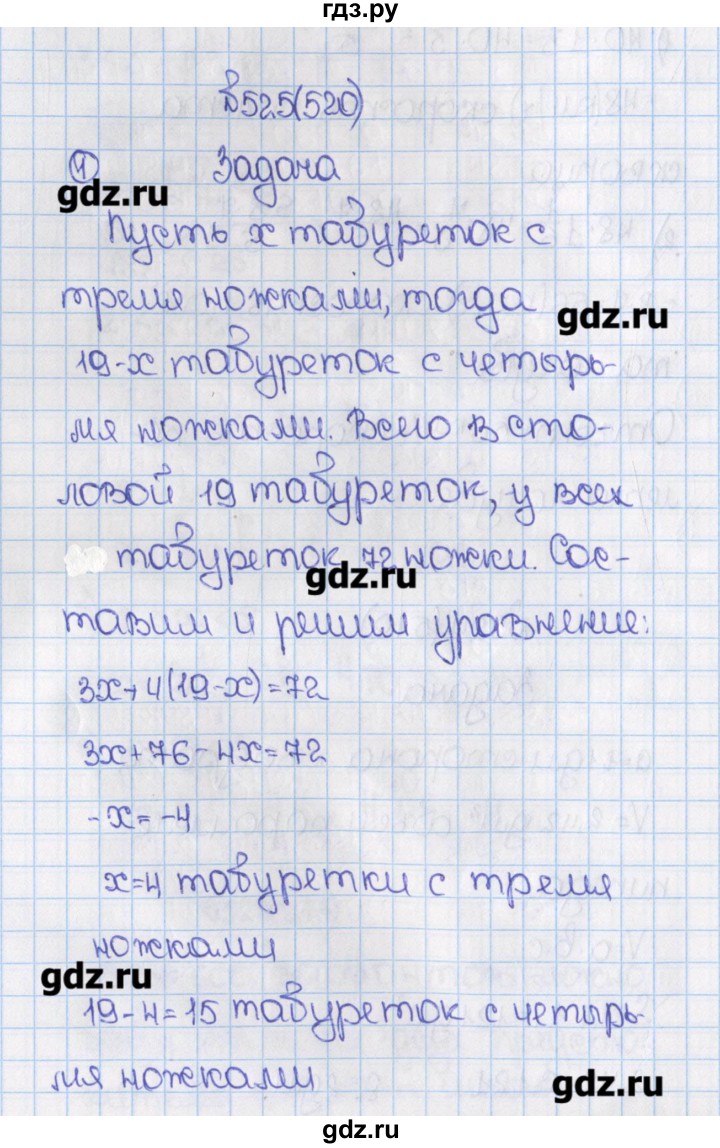 гдз.ру
№525(520)
1 Задача
gdz.ru
Пусть x табуреток с
тремя ножками, тогда
gdz.ru
19-x табуреток с четырь-
мя ножками. Всего в сто-
ловой 19 табуреток, у всех
табуреток 72 ножки. Сос-
gdz.ru
тавим и решим уравнение:
3x+4(19-x)=72
3x+76-4x=72
-x=-4
x=4 табуретки с тремя
ножками
gdz.ru
19-4=15 табуреток с четырь-
мя ножками
gdz.ru
гдз.ру